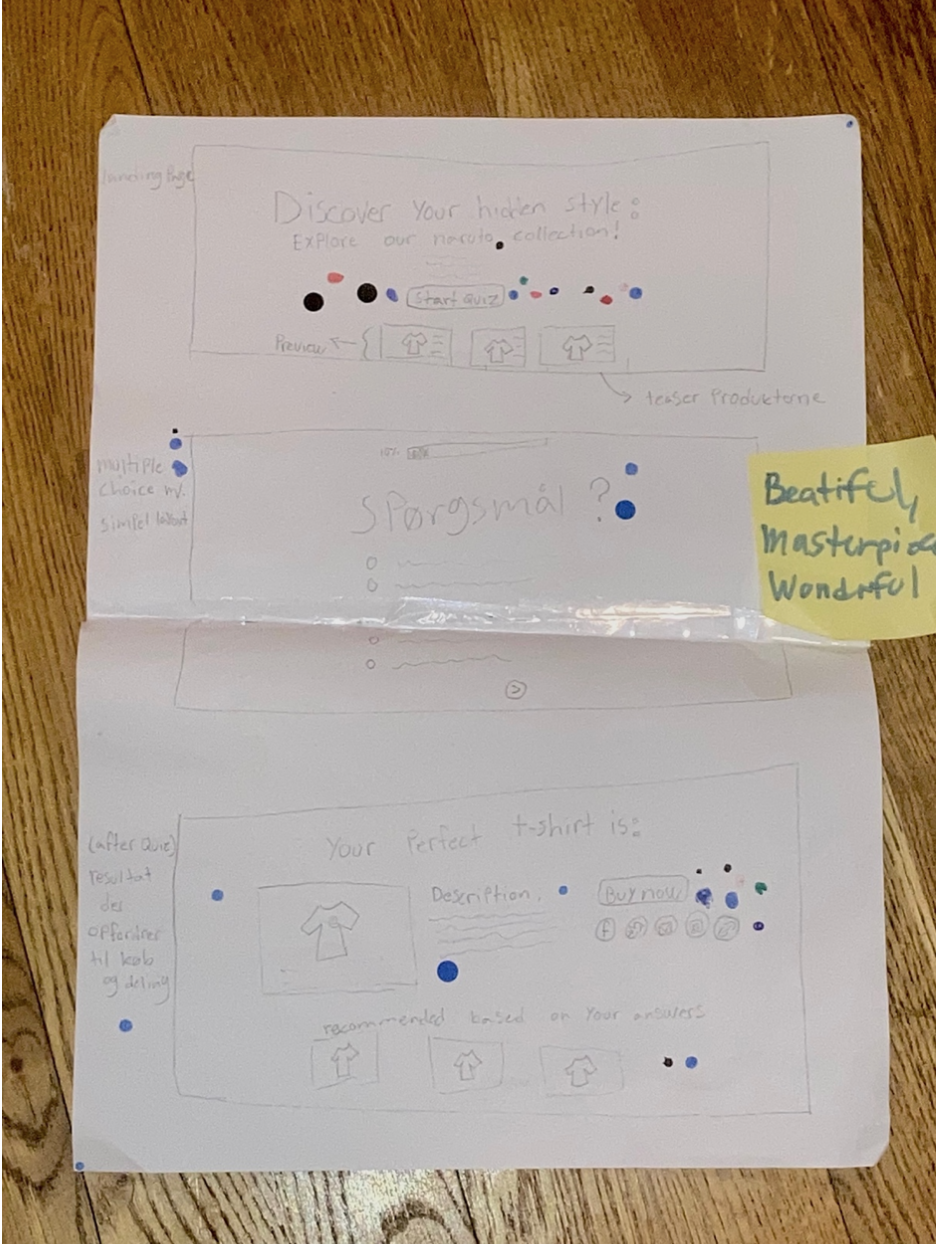 landing Page
Discover your hidden style:
Explore our naruto collection!
Start Quiz
Preview
teaser Produkterne
10%
multiple
choice m.
simpel layout
Spørgsmål ?
Beatiful,
Masterpiece
Wondrful
(after Quiz)
resultat
der
opfordrer
til køb
og deling
Your Perfect t-shirt is:
Description.
Buy now
f
recommended based on Your answers